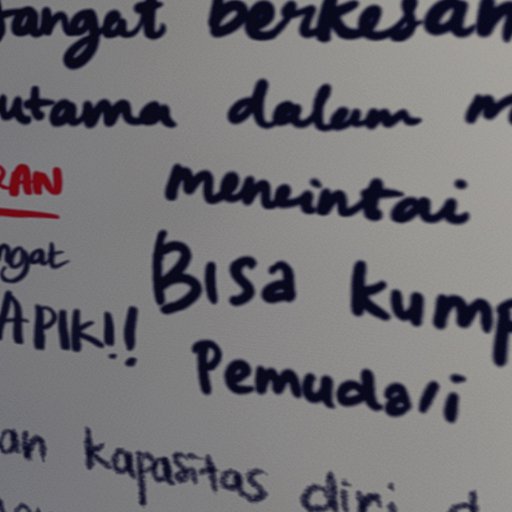 sangat berkesan
utama dalam m
RAN meneintai
ngat Bisa kump
APIK!! Pemuda/i
an kapasitas diri d